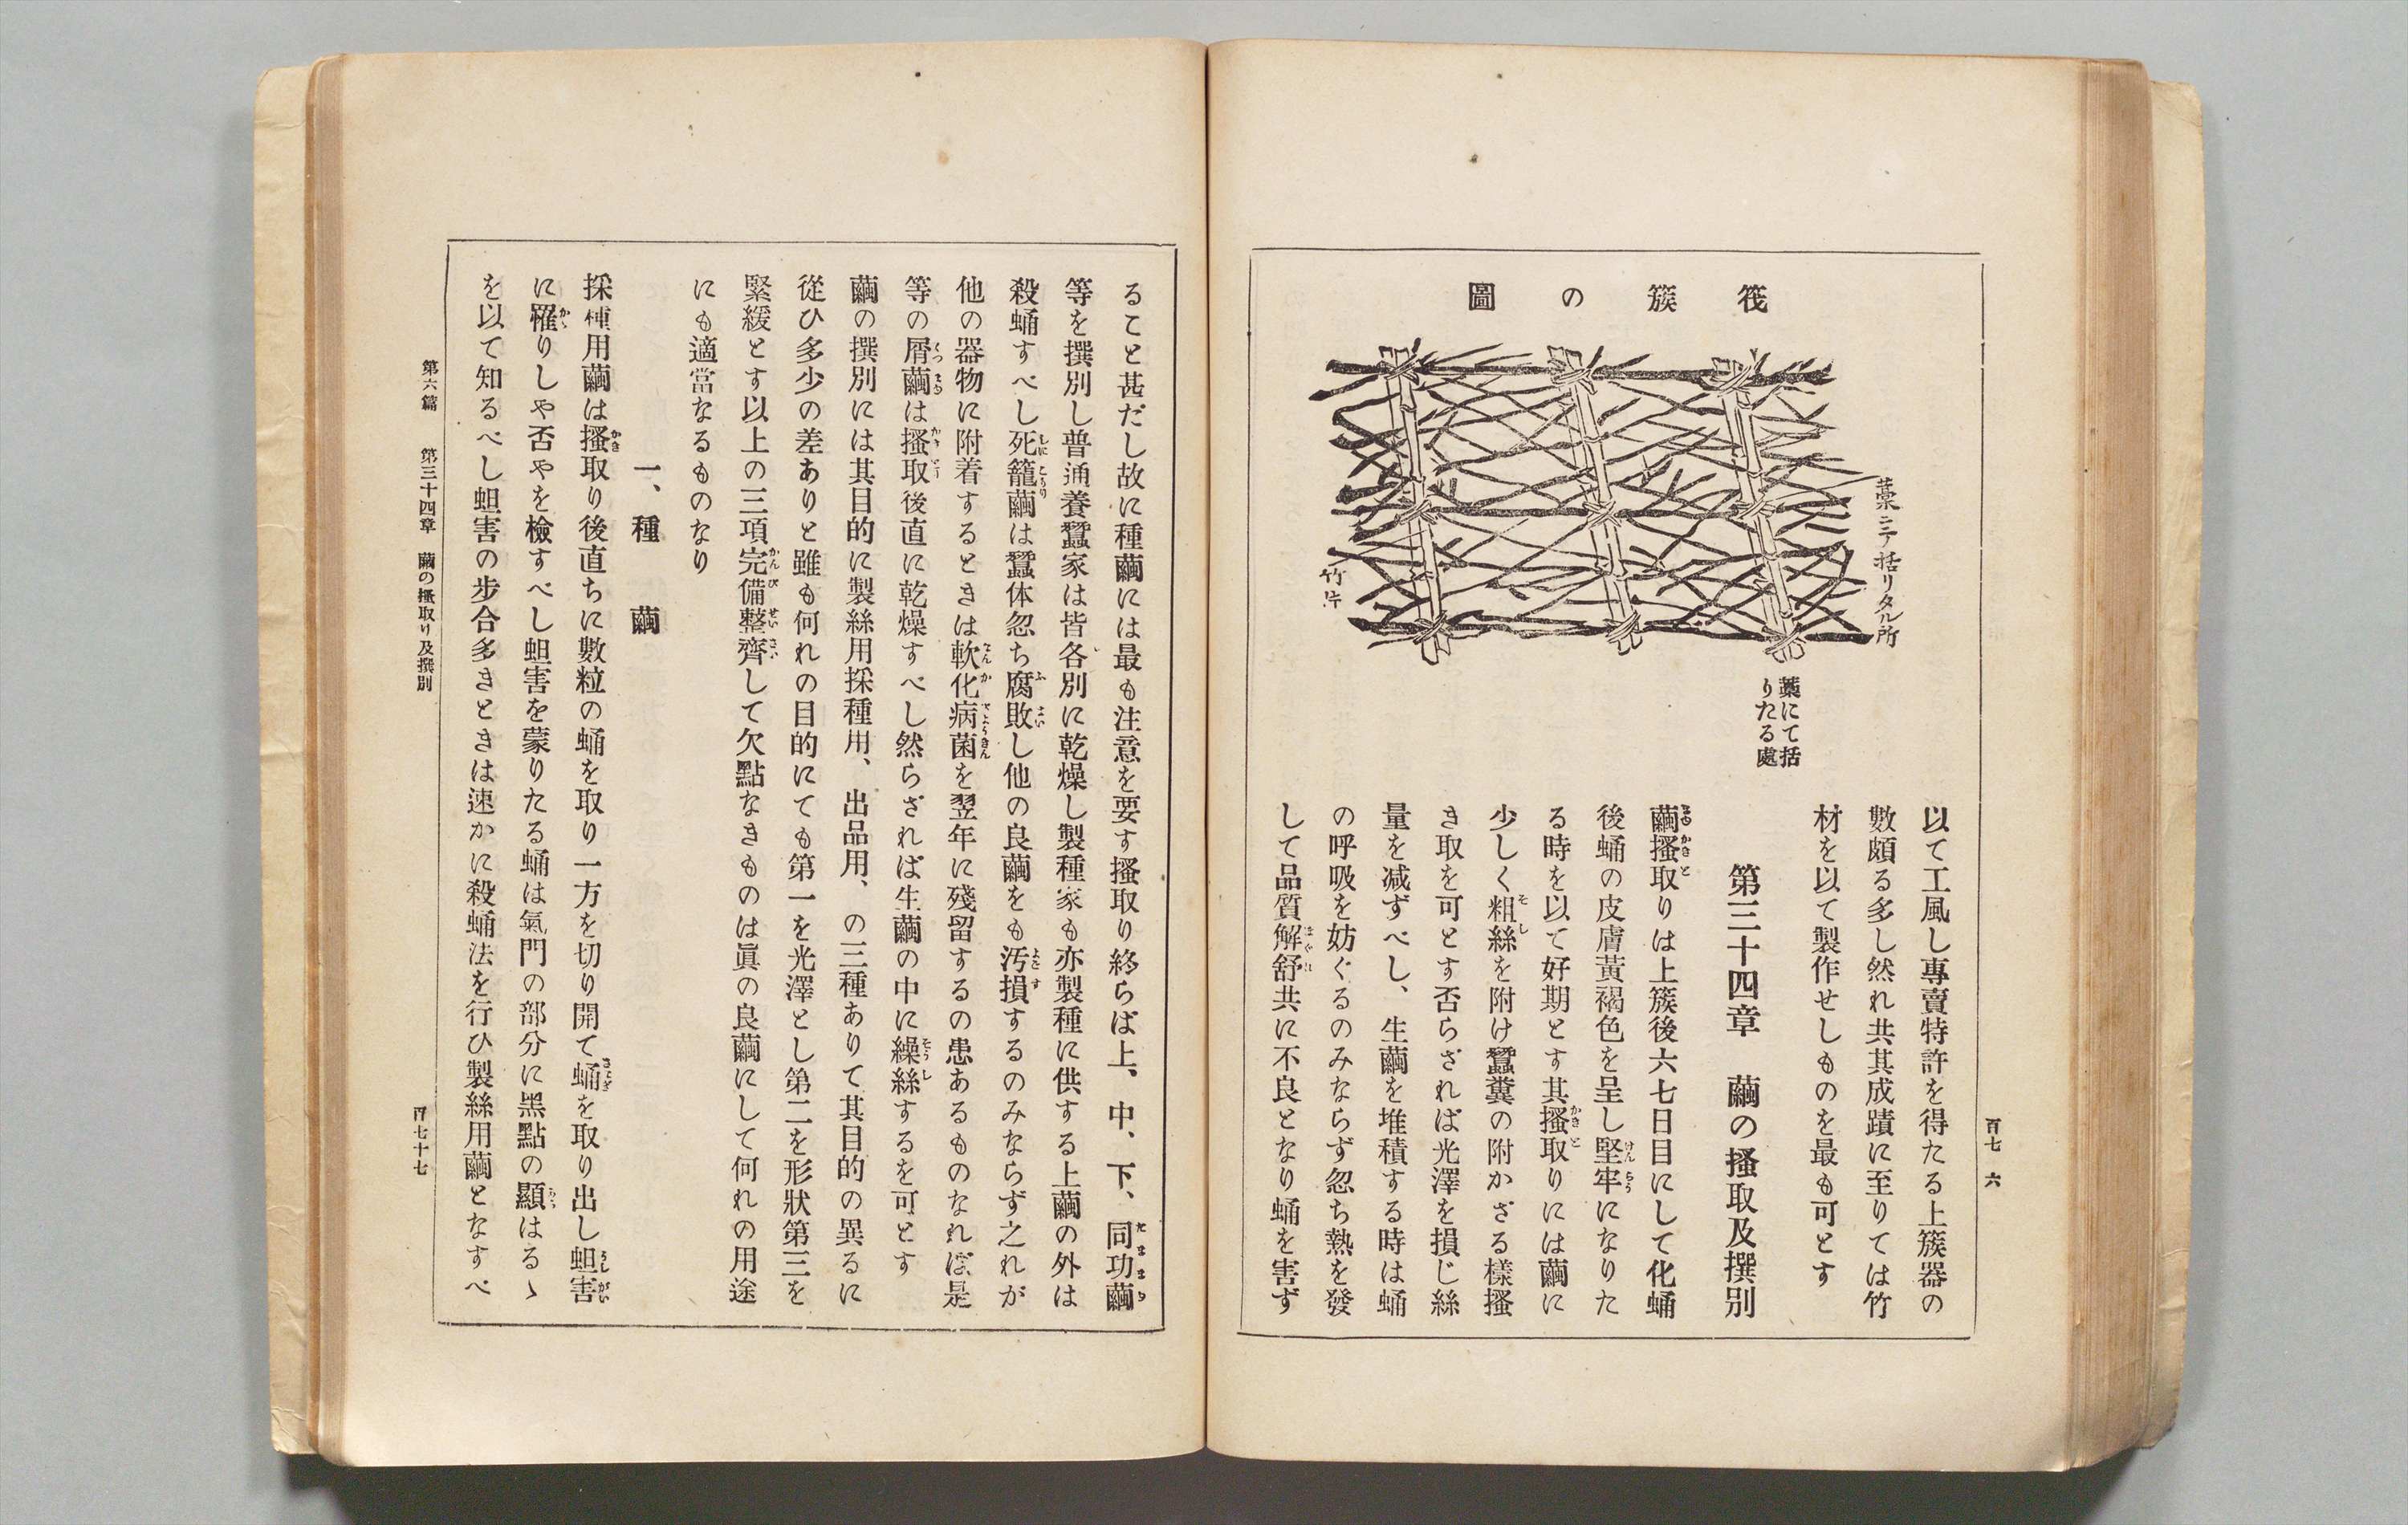 百七六
筏簇の圖
藁ニテ括リタル所
竹片
藁にて括
りたる處
以て工風し專賣特許を得たる上簇器の
數頗る多し然れ共其成蹟に至りては竹
材を以て製作せしものを最も可とす
第三十四章　繭の搔取及撰別
繭搔取りは上簇後六七日目にして化蛹
後蛹の皮膚黃褐色を呈し堅牢になりた
る時を以て好期とす其搔取りには繭に
少しく粗絲を附け蠶糞の附かざる樣搔
き取を可とす否らざれば光澤を損じ絲
量を减ずべし、生繭を堆積する時は蛹
の呼吸を妨ぐるのみならず忽ち熱を發
して品質解舒共に不良となり蛹を害ず
ること甚だし故に種繭には最も注意を要す搔取り終らば上、中、下、同功繭
等を撰別し普通養蠶家は皆各別に乾燥し製種家も亦製種に供する上繭の外は
殺蛹すべし死籠繭は蠶体忽ち腐敗し他の良繭をも汚損するのみならず之れが
他の器物に附着するときは軟化病菌を翌年に殘留するの患あるものなれば是
等の屑繭は搔取後直に乾燥すべし然らざれば生繭の中に繰絲するを可とす
繭の撰別には其目的に製絲用採種用、出品用、の三種ありて其目的の異るに
從ひ多少の差ありと雖も何れの目的にても第一を光澤とし第二を形狀第三を
緊緩とす以上の三項完備整齊して欠點なきものは眞の良繭にして何れの用途
にも適當なるものなり
一、種　繭
採種用繭は搔取り後直ちに數粒の蛹を取り一方を切り開て蛹を取り出し蛆害
に罹りしや否やを檢すべし蛆害を蒙りたる蛹は氣門の部分に黑點の顯はるゝ
を以て知るべし蛆害の步合多きときは速かに殺蛹法を行ひ製絲用繭となすべ
第六篇　第三十四章　繭の搔取り及撰別
百七十七